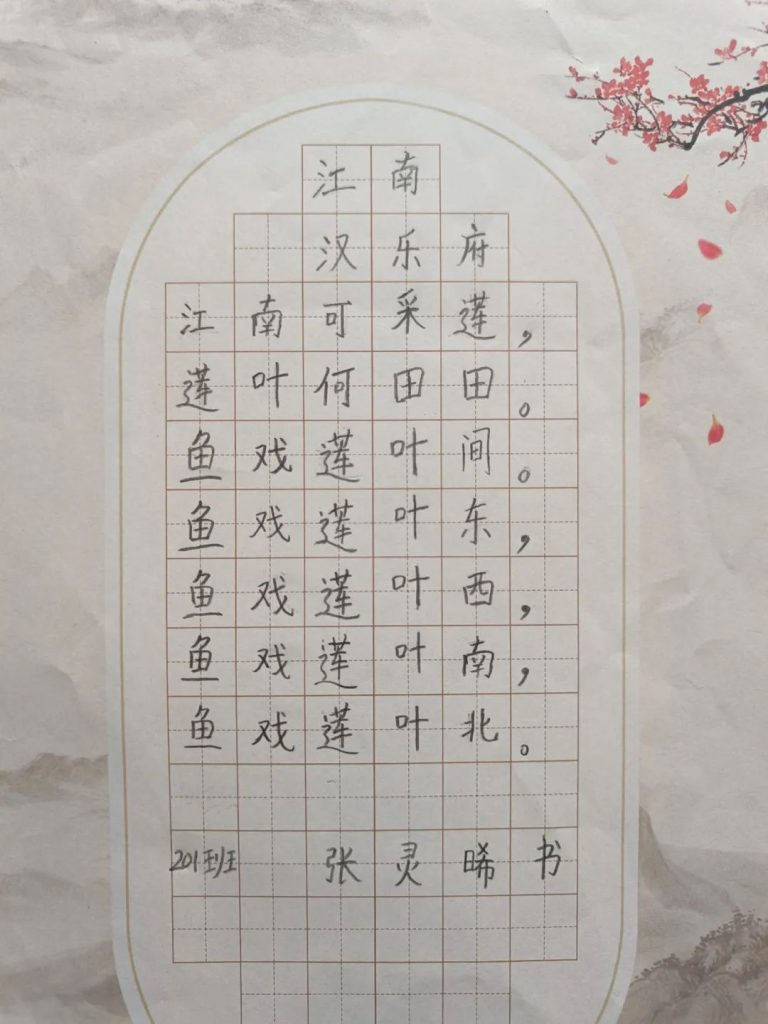 江南
汉乐府
江南可采莲，
莲叶何田田。
鱼戏莲叶间。
鱼戏莲叶东，
鱼戏莲叶西，
鱼戏莲叶南，
鱼戏莲叶北。
201班 张灵晞书